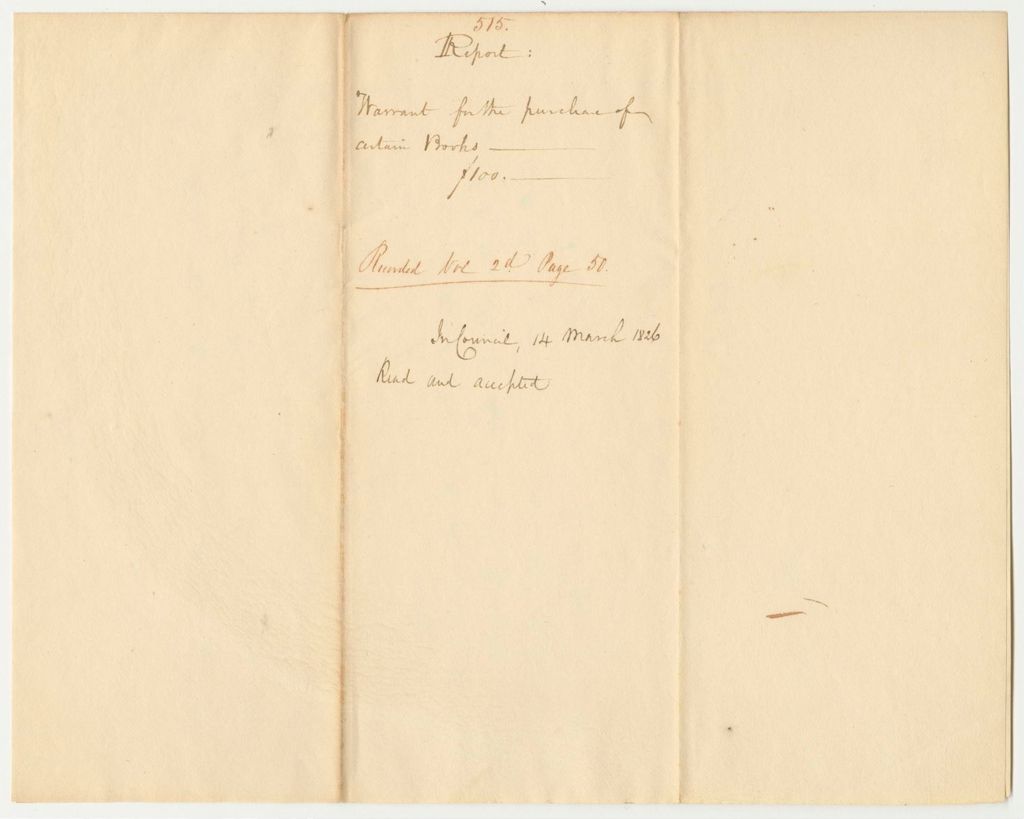 515.
Report:
Warrant for the purchase of
certain Books
$100.
Recorded Vol 2d. Page 50.
In Council, 14 March 1826
Read and accepted